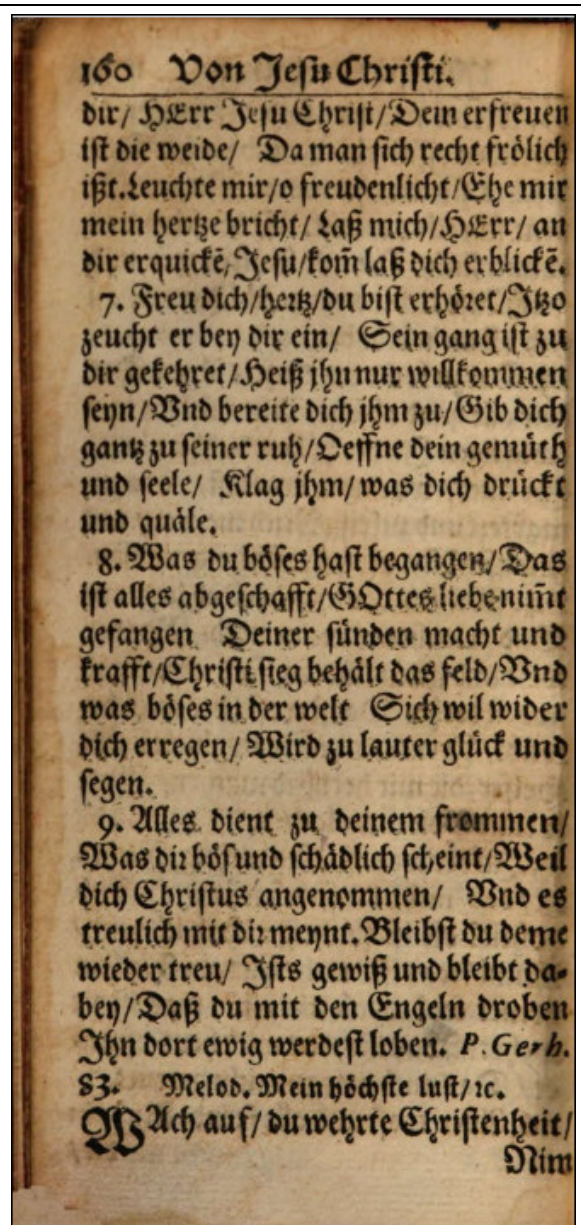 160 Von Jesu Christi.
dir/ HErr Jesu Christ/Dein erfreuen
ist die weide/ Da man sich recht frölich
ißt.Leuchte mir/o freudenlicht/Ehe mir
mein hertze bricht/ Laß mich/HErr/ an
dir erquickẽ/Jesu/kom̃ laß dich erblickẽ.
7. Freu dich/hertz/du bist erhöret/Jtzo
zeucht er bey dir ein/ Sein gang ist zu
dir gekehret/Heiß jhn nur willkommen
seyn/Vnd bereite dich jhm zu/Gib dich
gantz zu seiner ruh/Oeffne dein gemüth
und seele/ Klag jhm/ was dich drückt
und quäle.
8. Was du böses hast begangen/Das
ist alles abgeschafft/GOttes liebe nim̃t
gefangen Deiner sünden macht und
krafft/Christi sieg behält das feld/Vnd
was böses in der welt Sich wil wider
dich erregen/ Wird zu lauter glück und
segen.
9. Alles dient zu deinem frommen/
Was dir bös und schädlich scheint/Weil
dich Christus angenommen/ Vnd es
treulich mit dir meynt.Bleibst du deme
wieder treu/ Jsts gewiß und bleibt da-
bey/Daß du mit den Engeln droben
Jhn dort ewig werdest loben. P. Gerh.
83. Melod. Mein höchste lust/ꝛc.
WAch auf/ du wehrte Christenheit/
Nim